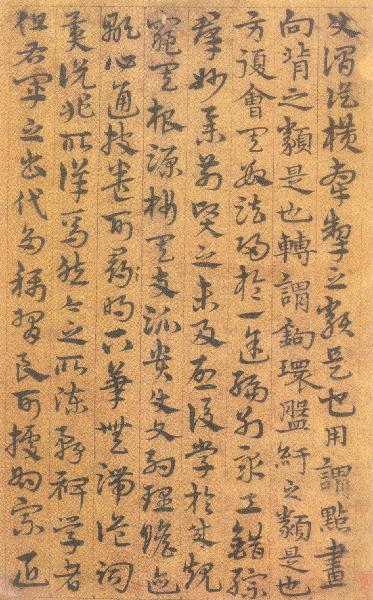 使謂縱橫牽掣之類是也用謂點畫
向背之類是也轉謂鉤環盤紆之類是也
方復會其數法歸於一途編列衆工錯綜
羣妙舉前賢之未及啓後學於成規
窺其根源析其枝派貴使文約理贍迹
顯心通披卷可明下筆無滯詭詞
異説非所詳焉然今之所陳務裨學者
但右軍之書代多稱習良可據為宗匠